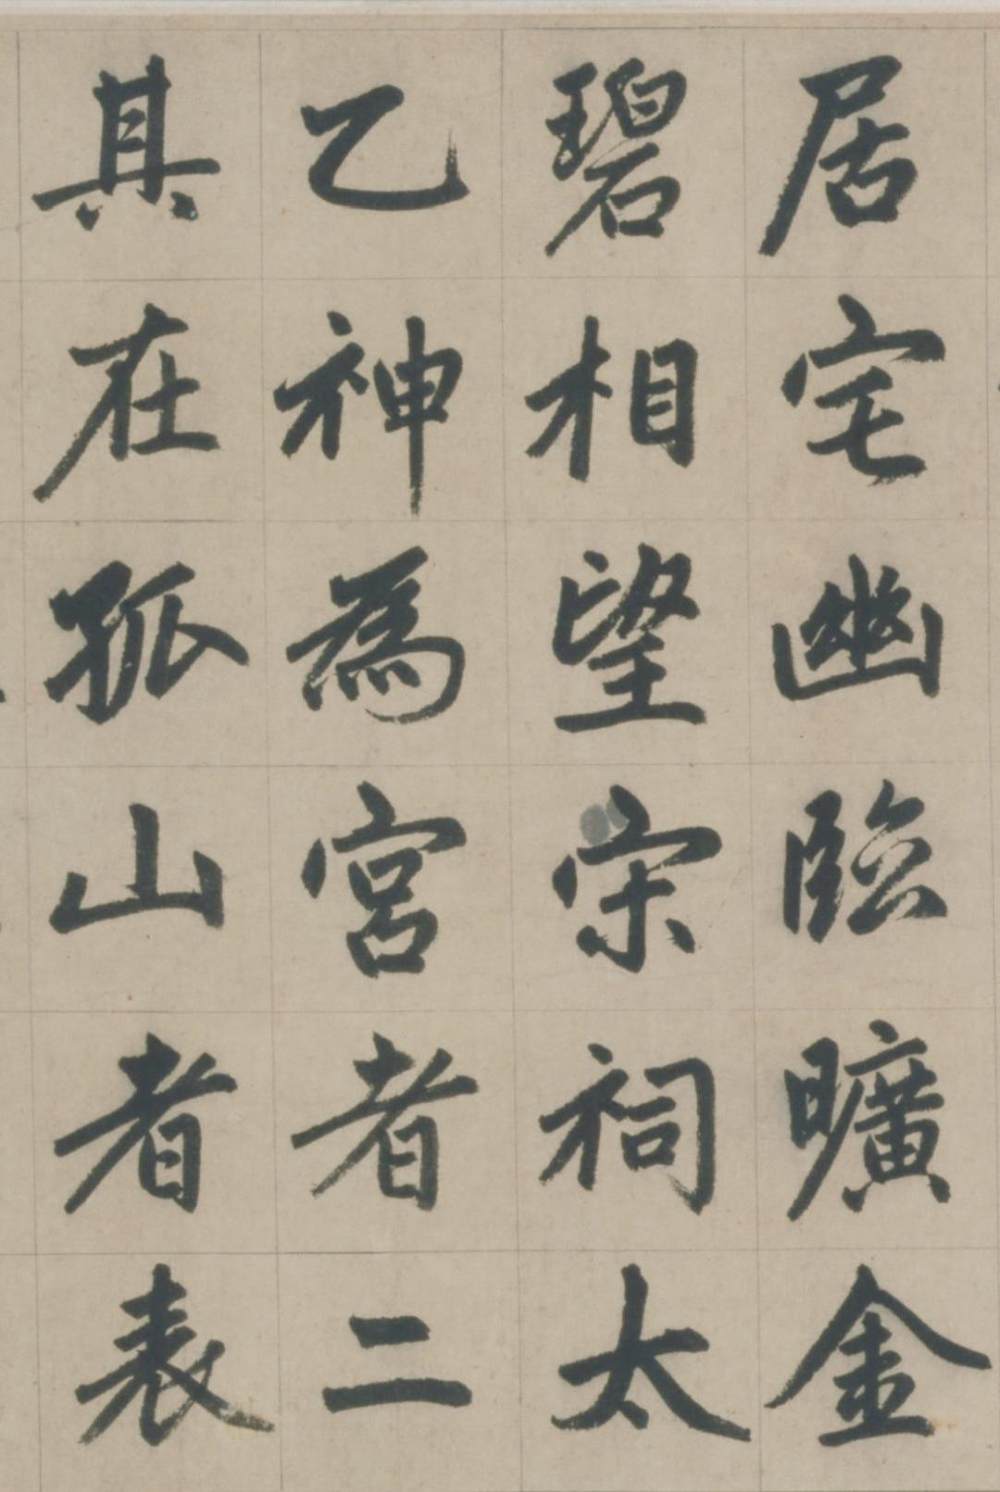 居宅幽臨曠金
碧相望宋祠太
乙神為宮者二
其在孤山者表